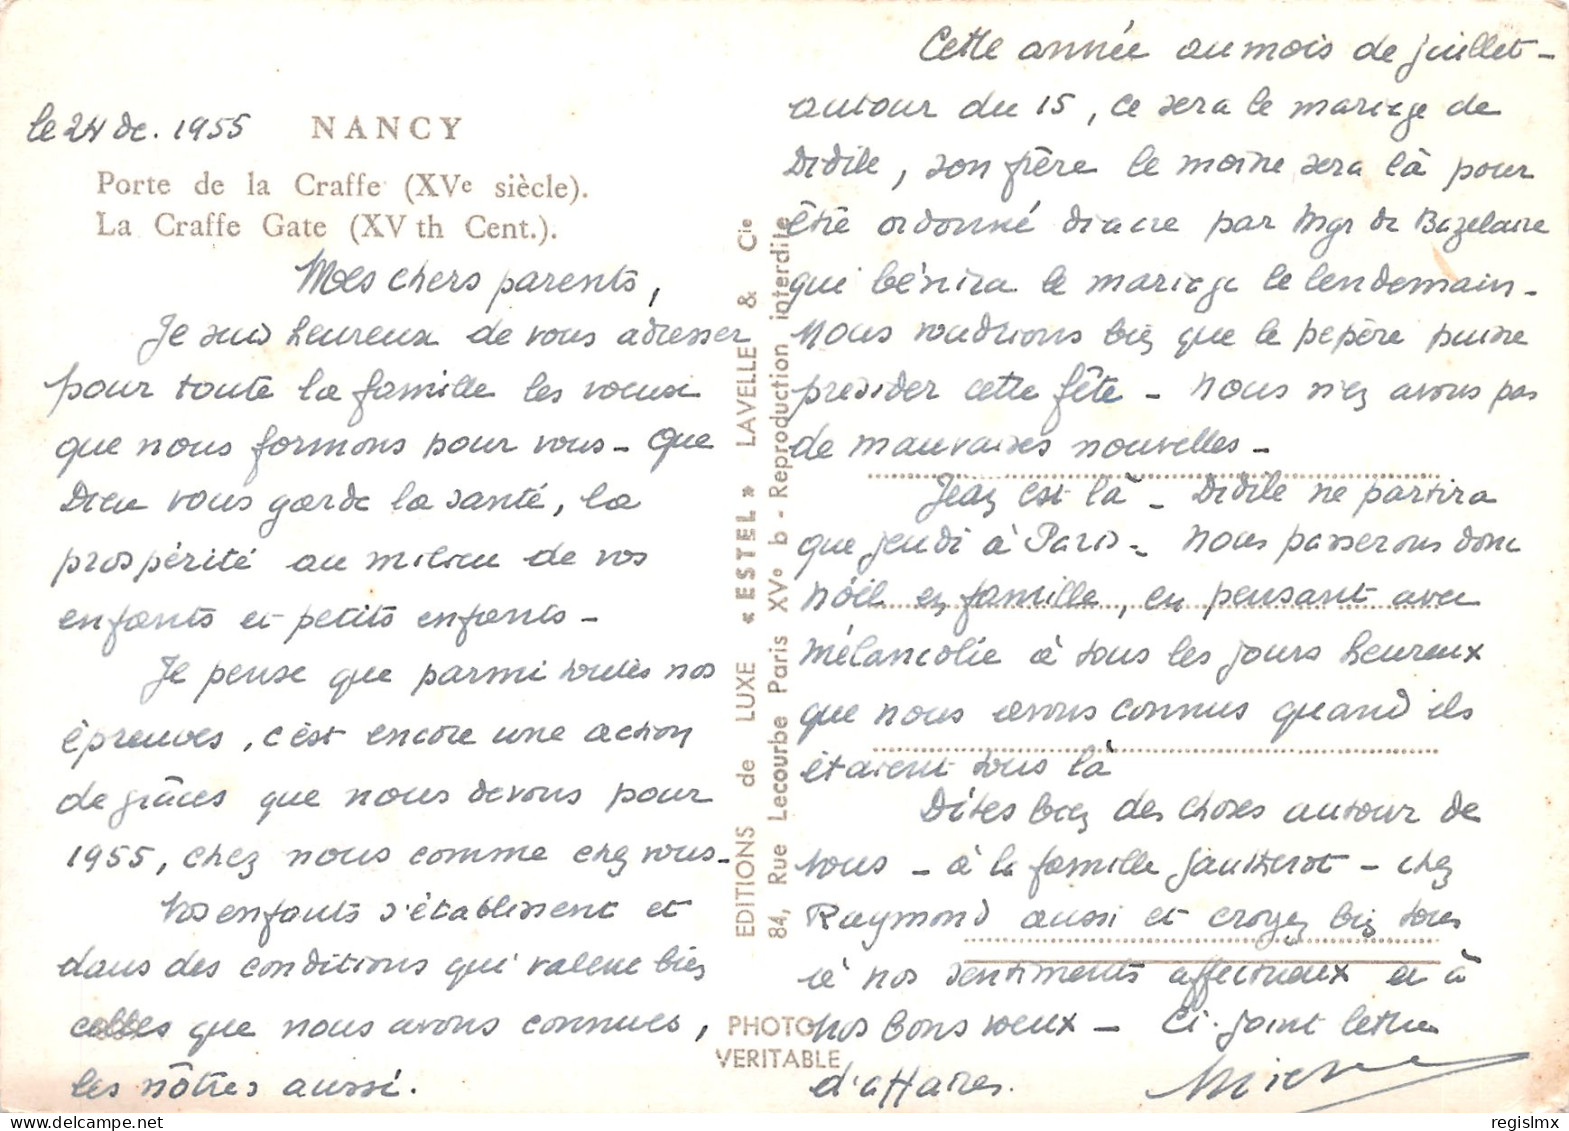 le 24 de. 1955
NANCY
Porte de la Craffe (XVe siècle).
La Craffe Gate (XV th Cent.).
Mes chers parents,
Je suis heureux de vous adresser
pour toute la famille les voeux
que nous formons pour vous - Que
Dieu vous garde la santé, la
prospérité au milieu de vos
enfants et petits enfants -
Je pense que parmi toutes nos
épreuves, c'est encore une action
de grâces que nous devons pour
1955, chez nous comme chez vous -
Nos enfants s'établissent et
dans des conditions qui valent bien
celles que nous avons connues,
les nôtres aussi.
EDITIONS de LUXE « ESTEL » LAVELLE & Cie
84, Rue Lecourbe Paris XVe b - Reproduction interdite
PHOTO
VERITABLE
Cette année au mois de juillet -
autour du 15, ce sera le mariage de
Odile, son frère le moine sera là pour
être ordonné diacre par Mgr de Bazelaire
qui bénira le mariage le lendemain -
Nous voudrions bien que le pépère puisse
présider cette fête - Nous n'en avons pas
de mauvaises nouvelles -
Jean est là - Odile ne partira
que jeudi à Paris - Nous passerons donc
Nöel en famille, en pensant avec
mélancolie à tous les jours heureux
que nous avons connus quand ils
étaient tous là
Dites bien des choses autour de
vous - à la famille Gautherot - chez
Raymond aussi et croyez bien tous
à nos sentiments affectueux et à
nos bons voeux - Ci-joint lettre
d'affaires.
regislmx